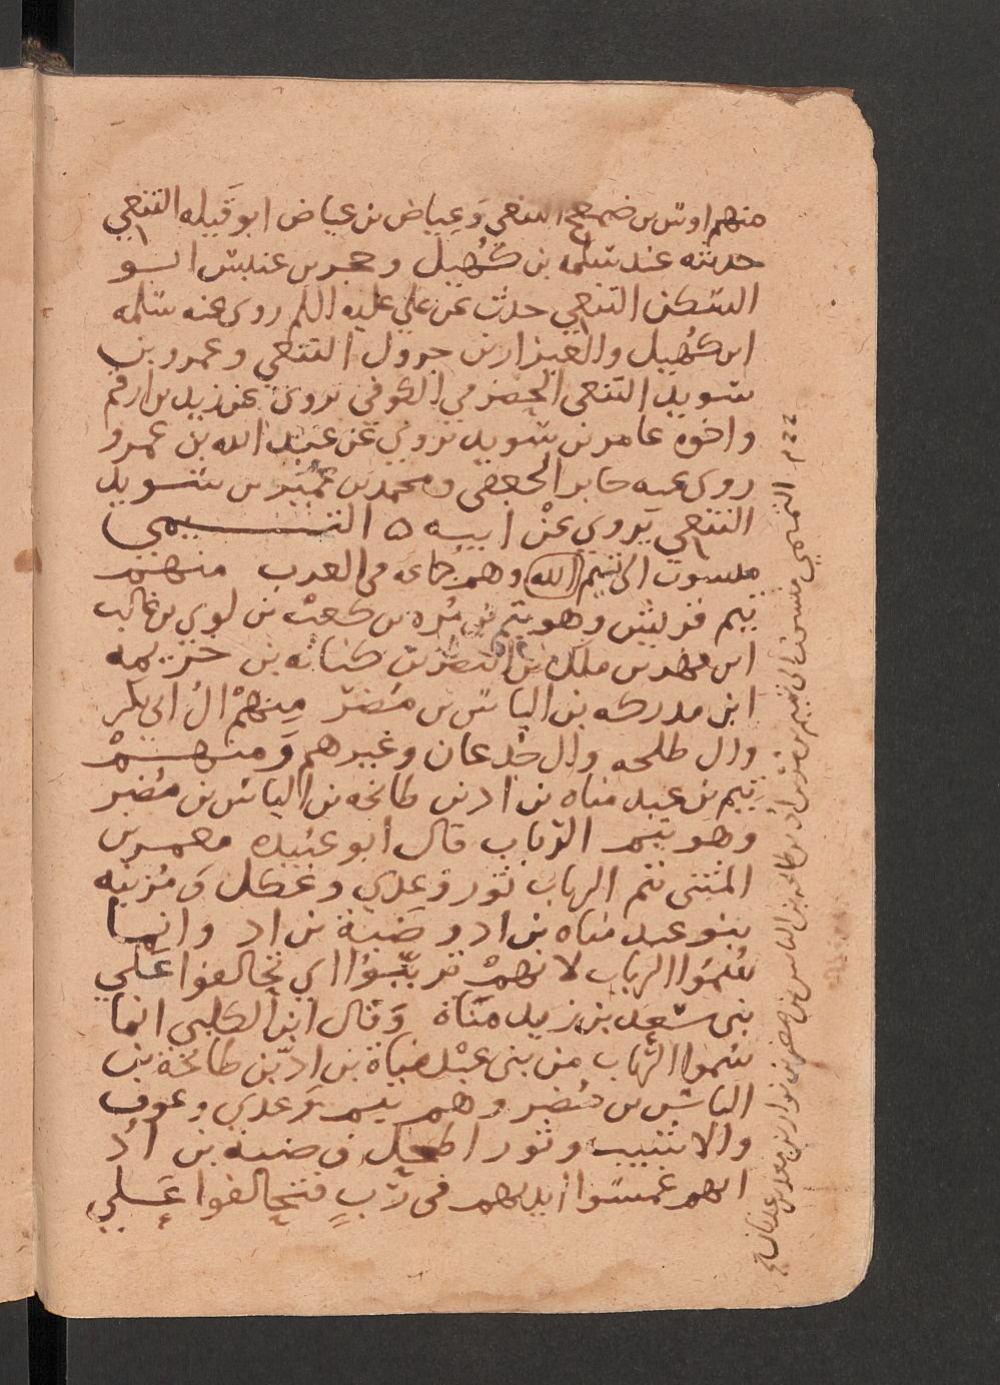 منهم اوس بن ضمعج التنعي وعياض بن عياض ابو قيله التنعي
حدثه عند سلمه بن كُهيل وحجر بن عنبس ابو
السكن التنعي حدث عن علي عليه السلم روى عنه سلمه
ابن كُهيل والعيزار بن جرول التنعي وعمرو بن
سويد التنعي الحضرمي الكوفي يروي عن زيد بن ارقم
واخوه عامر بن سويد يروي عن عبد الله بن عمرو
روى عنه جابر الجعفي ومحمد بن عمير بن سويد
التنعي يَروي عنْ ابيه ٥ التيمي
منسوب الى تيم الله وهم جماعه في العرب منهم
تيم قريش وهو تيم بن مُره بن كعب بن لوي بن غالب
ابن فهر بن ملك بن النضر بن كنانه بن خزيمه
ابن مدركه بن الياس بن مضر مِنهمْ الُ ابي بكر
وال طلحه وال جُدعان وغيرهم وَمنهمْ
تيم بن عبد مناه بن اد بن طابخه بن الياس بن مُضر
وهو تيم الرباب قال ابو عبيده معمر بن
المثنى تيم الرباب ثور وعدي وعكل و مُزينه
بنو عبد مناه بن اد و ضبة بن اد وانما
سُموا الرباب لانهمْ تربّبوُا اي تحالفوا عَلي
بني سعد بن زيد منَاة وَقال ابن الكلبي انما
سُموا الرّباب من بني عبْد مناة بن ادّ بن طابخة بن
الياس بن مُضر وهم تيم وَعدي وعوف
والاشيب وثور اطحل و ضبة بن اُد
انهم غمسوا ايديهم في رُبٍ فتحالفوا عَلي
التميمي منسوب الى تميم بن مر بن اد بن طابخه بن الياس بن مضر بن نزار بن معد بن عدنان